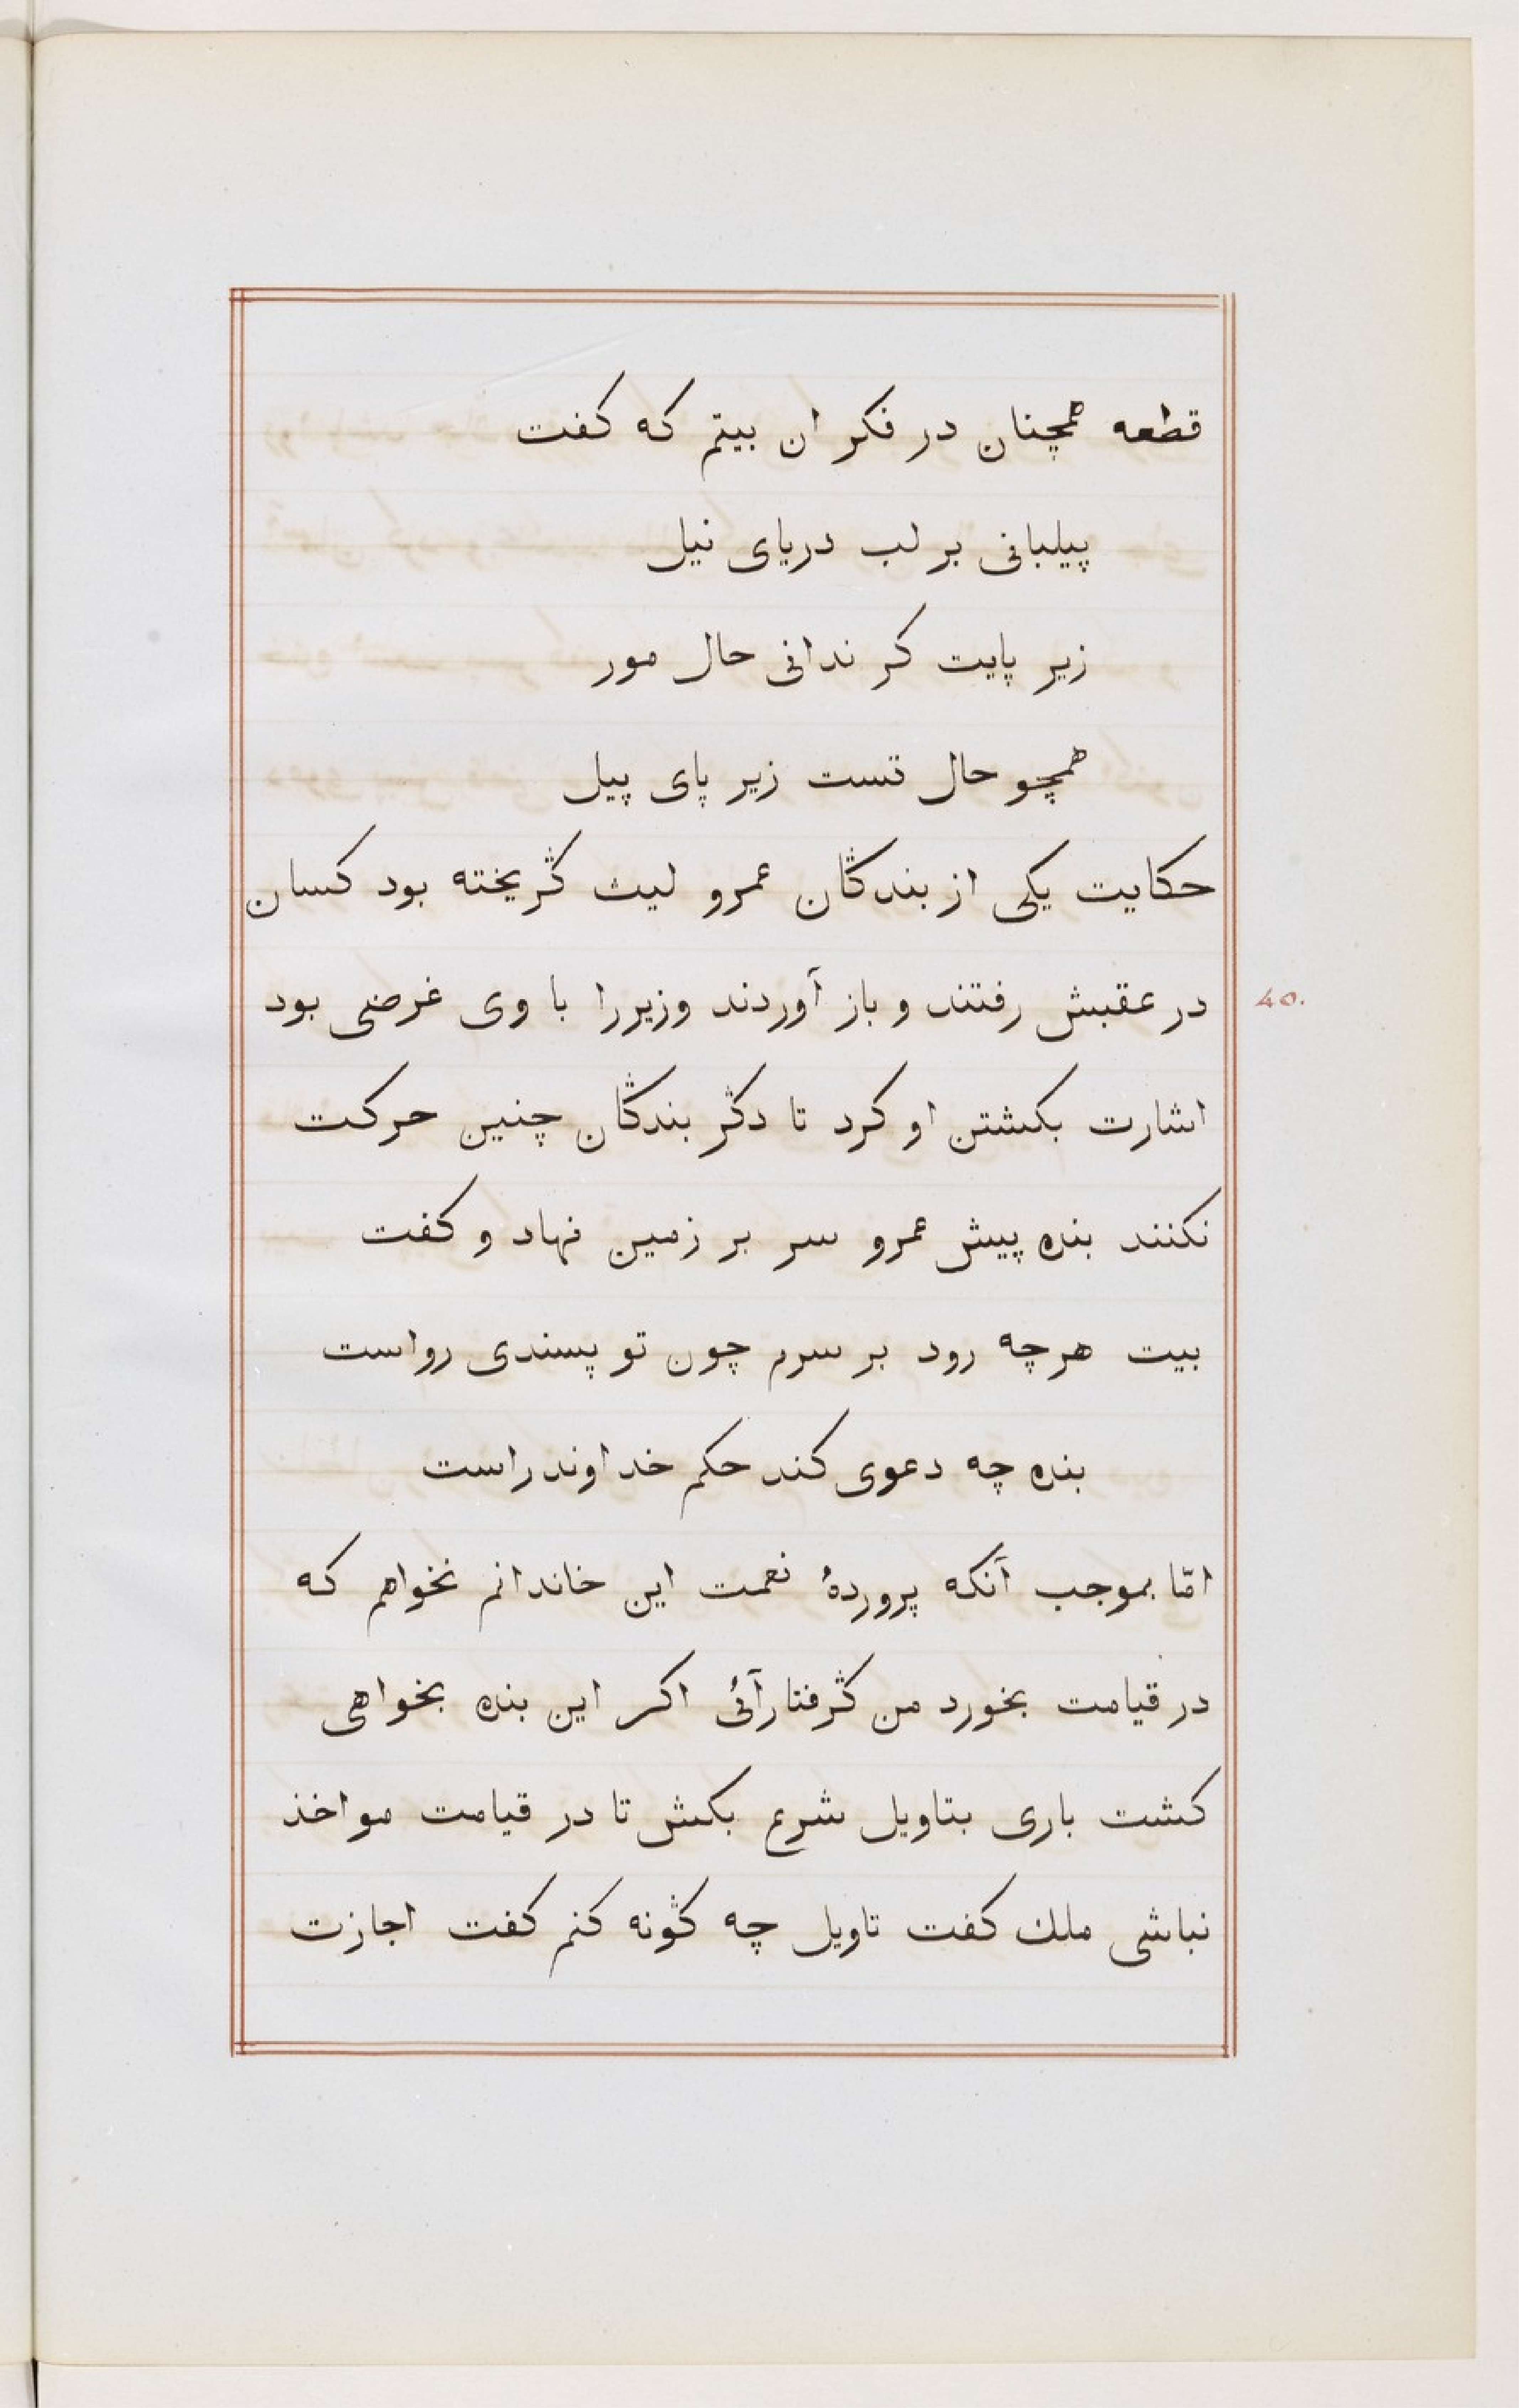 قطعه همچنان در فکر ان بیتم که کفت
پیلبانی بر لب دریای نیل
زیر پایت کر ندانی حال مور
همچو حال تست زیر پای پیل
حکایت یکی از بندگان عمرو لیث گریخته بود کسان
در عقبش رفتند و باز آوردند وزیررا با وی غرضی بود
40.
اشارت بکشتن او کرد تا دگر بندگان چنین حرکت
نکنند بنده پیش عمرو سر بر زمین نهاد و کفت
بیت هرچه رود بر سرم چون تو پسندی رواست
بنده چه دعوی کند حکم خداوندراست
امّا بموجب آنکه پروردهٔ نعمت این خاندانم نخواهم که
در قیامت بخورد من گرفتار آئی اکر این بنده بخواهی
کشت باری بتاویل شرع بکش تا در قیامت مواخذ
نباشی ملك کفت تاویل چه گونه کنم کفت اجازت